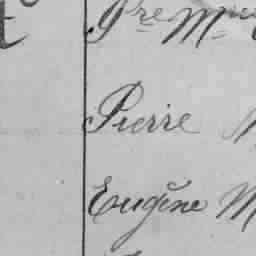 Pre M
Pierre M
Eugène M